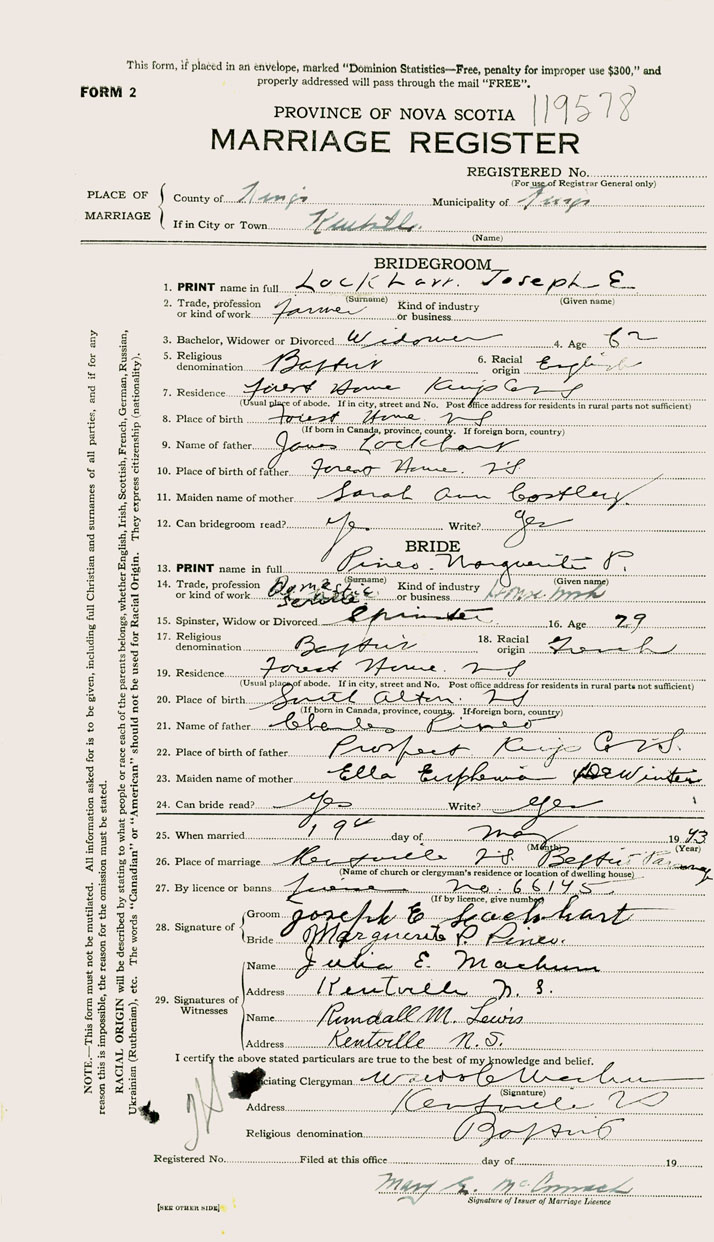 This form, if placed in an envelope, marked "Dominion Statistics—Free, penalty for improper use $300," and
properly addressed will pass through the mail "FREE".
FORM 2
PROVINCE OF NOVA SCOTIA 119578
MARRIAGE REGISTER
REGISTERED No.
(For use of Registrar General only)
PLACE OF MARRIAGE
County of Kings Municipality of Kings
If in City or Town Kentville
(Name)
BRIDEGROOM
1. PRINT name in full Lockhart Joseph E.
(Surname) (Given name)
2. Trade, profession or kind of work Farmer Kind of industry or business
3. Bachelor, Widower or Divorced Widower 4. Age 62
5. Religious denomination Baptist 6. Racial origin English
7. Residence Forest Home Kings Co NS
(Usual place of abode. If in city, street and No. Post office address for residents in rural parts not sufficient)
8. Place of birth Forest Home NS
(If born in Canada, province, county. If foreign born, country)
9. Name of father James Lockhart
10. Place of birth of father Forest Home. NS
11. Maiden name of mother Sarah Ann Costley
12. Can bridegroom read? Yes Write? Yes
BRIDE
13. PRINT name in full Pineo Marguerite P.
(Surname) (Given name)
14. Trade, profession or kind of work Domestic Service Kind of industry or business Housework
15. Spinster, Widow or Divorced Spinster 16. Age 29
17. Religious denomination Baptist 18. Racial origin French
19. Residence Forest Home. NS
(Usual place of abode. If in city, street and No. Post office address for residents in rural parts not sufficient)
20. Place of birth South Alton. NS
(If born in Canada, province, county. If foreign born, country)
21. Name of father Charles Pineo
22. Place of birth of father Prospect Kings Co NS.
23. Maiden name of mother Ella Euphemia DeWinter
24. Can bride read? Yes Write? Yes
25. When married 19th day of May 1943
(Month) (Year)
26. Place of marriage Kentville NS. Baptist Parsonage
(Name of church or clergyman's residence or location of dwelling house)
27. By licence or banns License No. 66145
(If by licence, give number)
28. Signature of
Groom Joseph E Lockhart
Bride Marguerite P. Pineo.
29. Signatures of Witnesses
Name Julia E. Machum
Address Kentville N. S.
Name Rundall M. Lewis
Address Kentville N.S.
I certify the above stated particulars are true to the best of my knowledge and belief.
ciating Clergyman Machum
(Signature)
Address Kentville NS
Religious denomination Baptist
Registered No. Filed at this office day of 19
Mary E. McCormack
Signature of Issuer of Marriage Licence
[SEE OTHER SIDE]
NOTE.—This form must not be mutilated. All information asked for is to be given, including full Christian and surnames of all parties, and if for any
reason this is impossible, the reason for the omission must be stated.
RACIAL ORIGIN will be described by stating to what people or race each of the parents belongs, whether English, Irish, Scottish, French, German, Russian,
Ukrainian (Ruthenian), etc. The words "Canadian" or "American" should not be used for Racial Origin. They express citizenship (nationality).